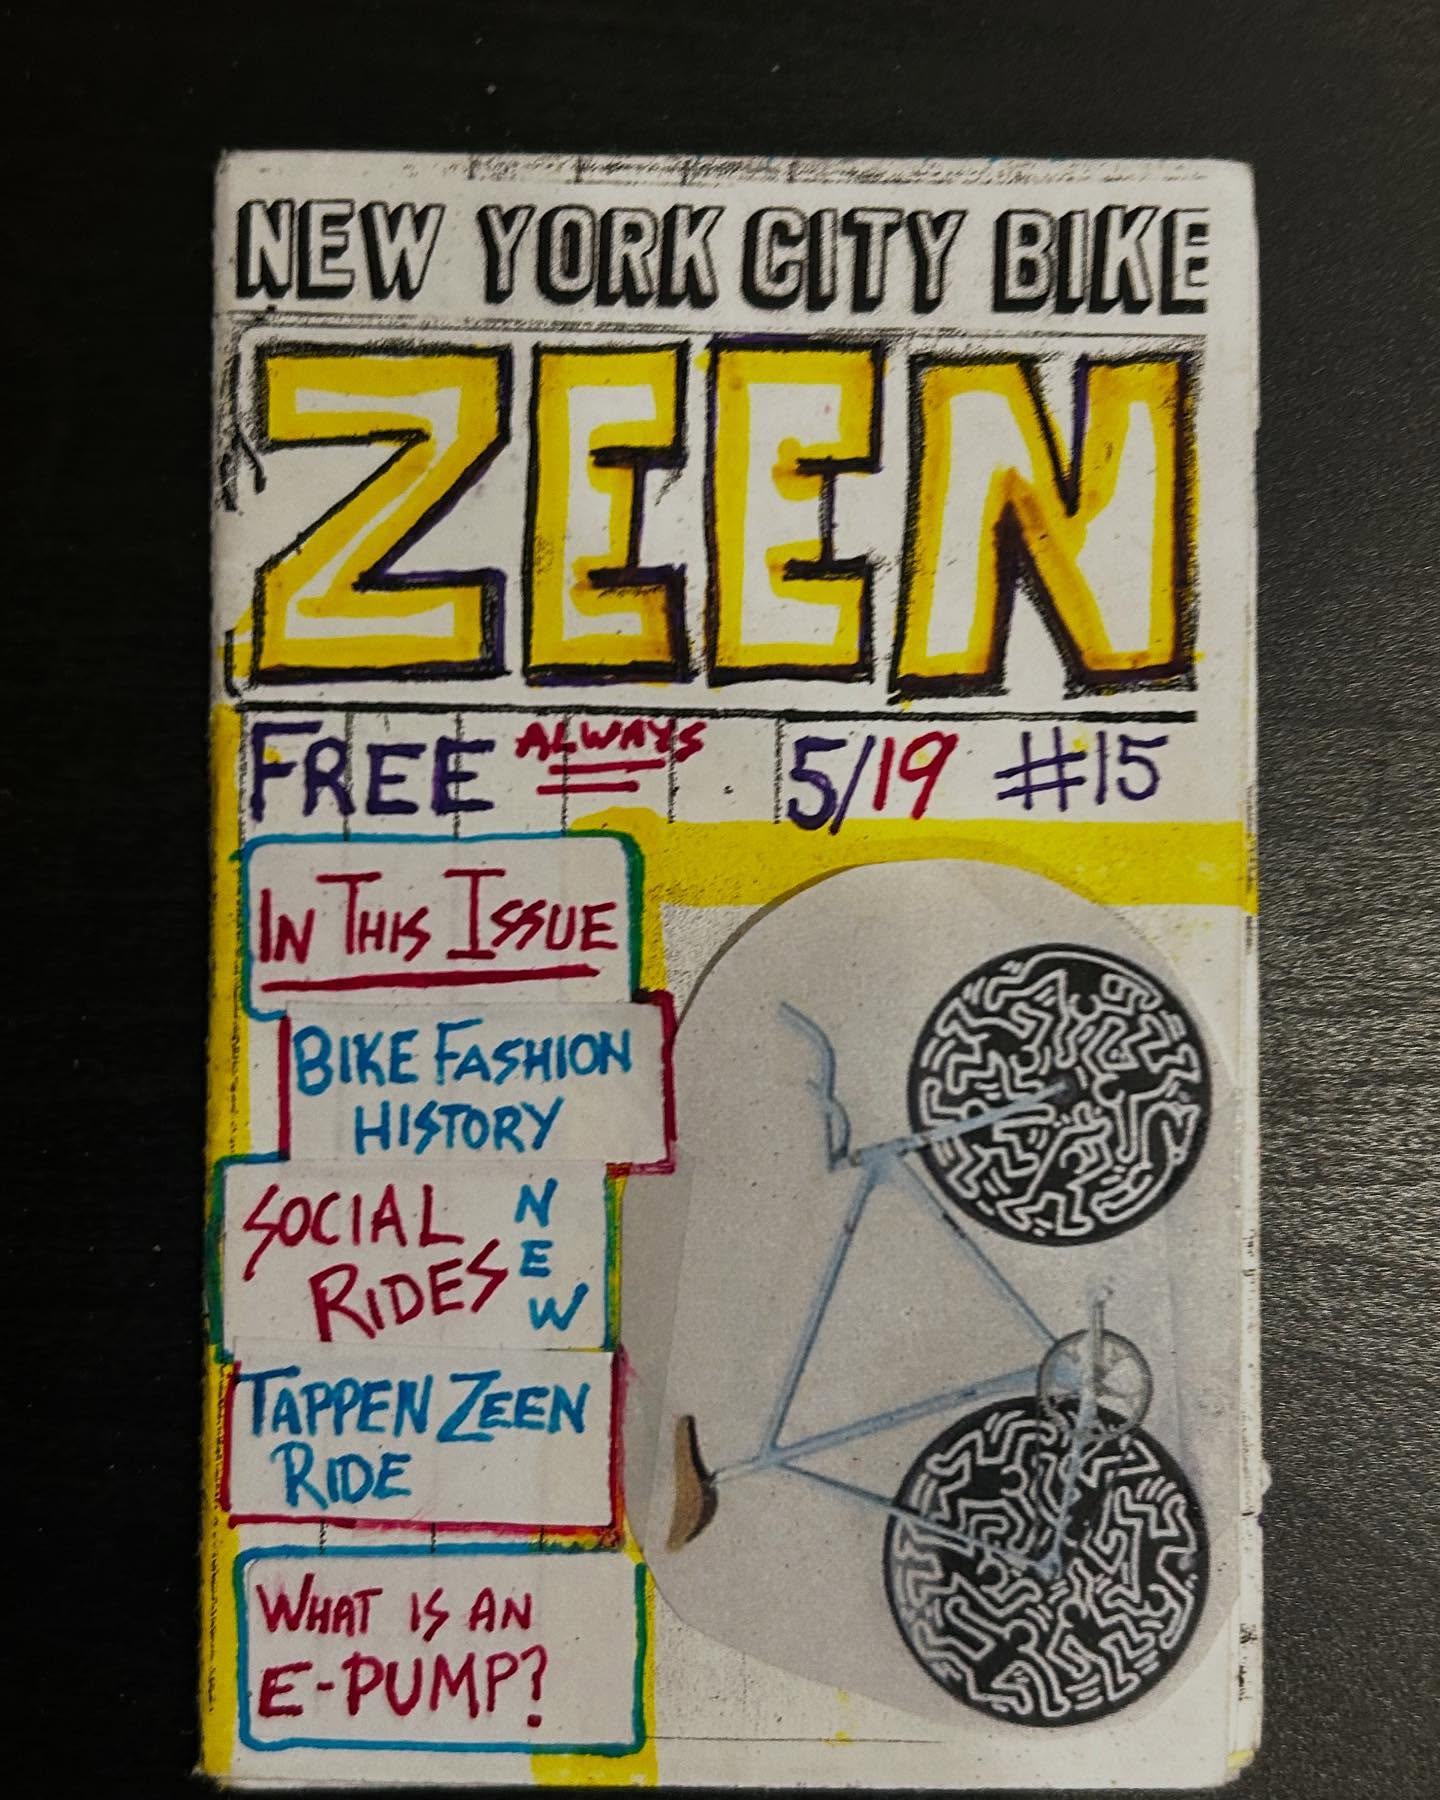 NEW YORK CITY BIKE
ZEEN
FREE ALWAYS 5/19 #15
IN THIS ISSUE
BIKE FASHION
HISTORY
SOCIAL
RIDES
NEW
TAPPEN ZEEN
RIDE
WHAT IS AN
E-PUMP?